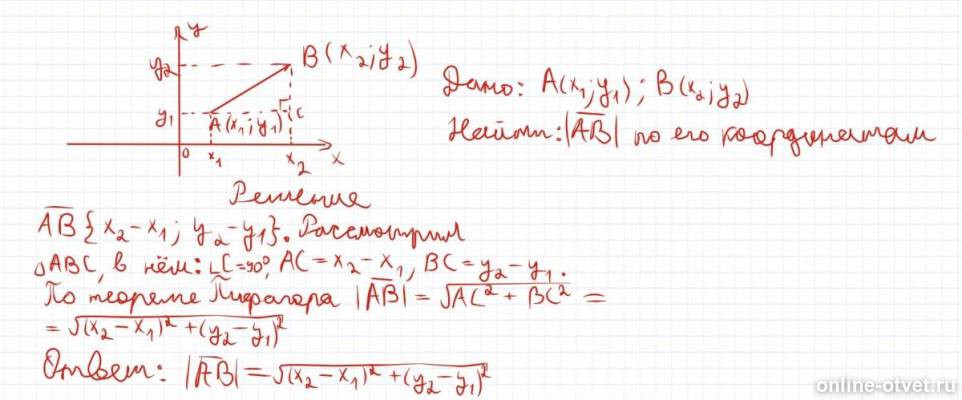 y
y₂ B(x₂; y₂)
y₁ A(x₁; y₁) C
0 x₁ x₂ x
Дано: A(x₁; y₁); B(x₂; y₂)
Найти: |A̅B̅| по его координатам
Решение
A̅B̅{x₂ − x₁; y₂ − y₁}. Рассмотрим
△ABC, в нём: ∠C=90°, AC = x₂ − x₁, BC = y₂ − y₁.
По теореме Пифагора |A̅B̅| = √(AC² + BC²) =
= √((x₂ − x₁)² + (y₂ − y₁)²)
Ответ: |A̅B̅| = √((x₂ − x₁)² + (y₂ − y₁)²)
online-otvet.ru